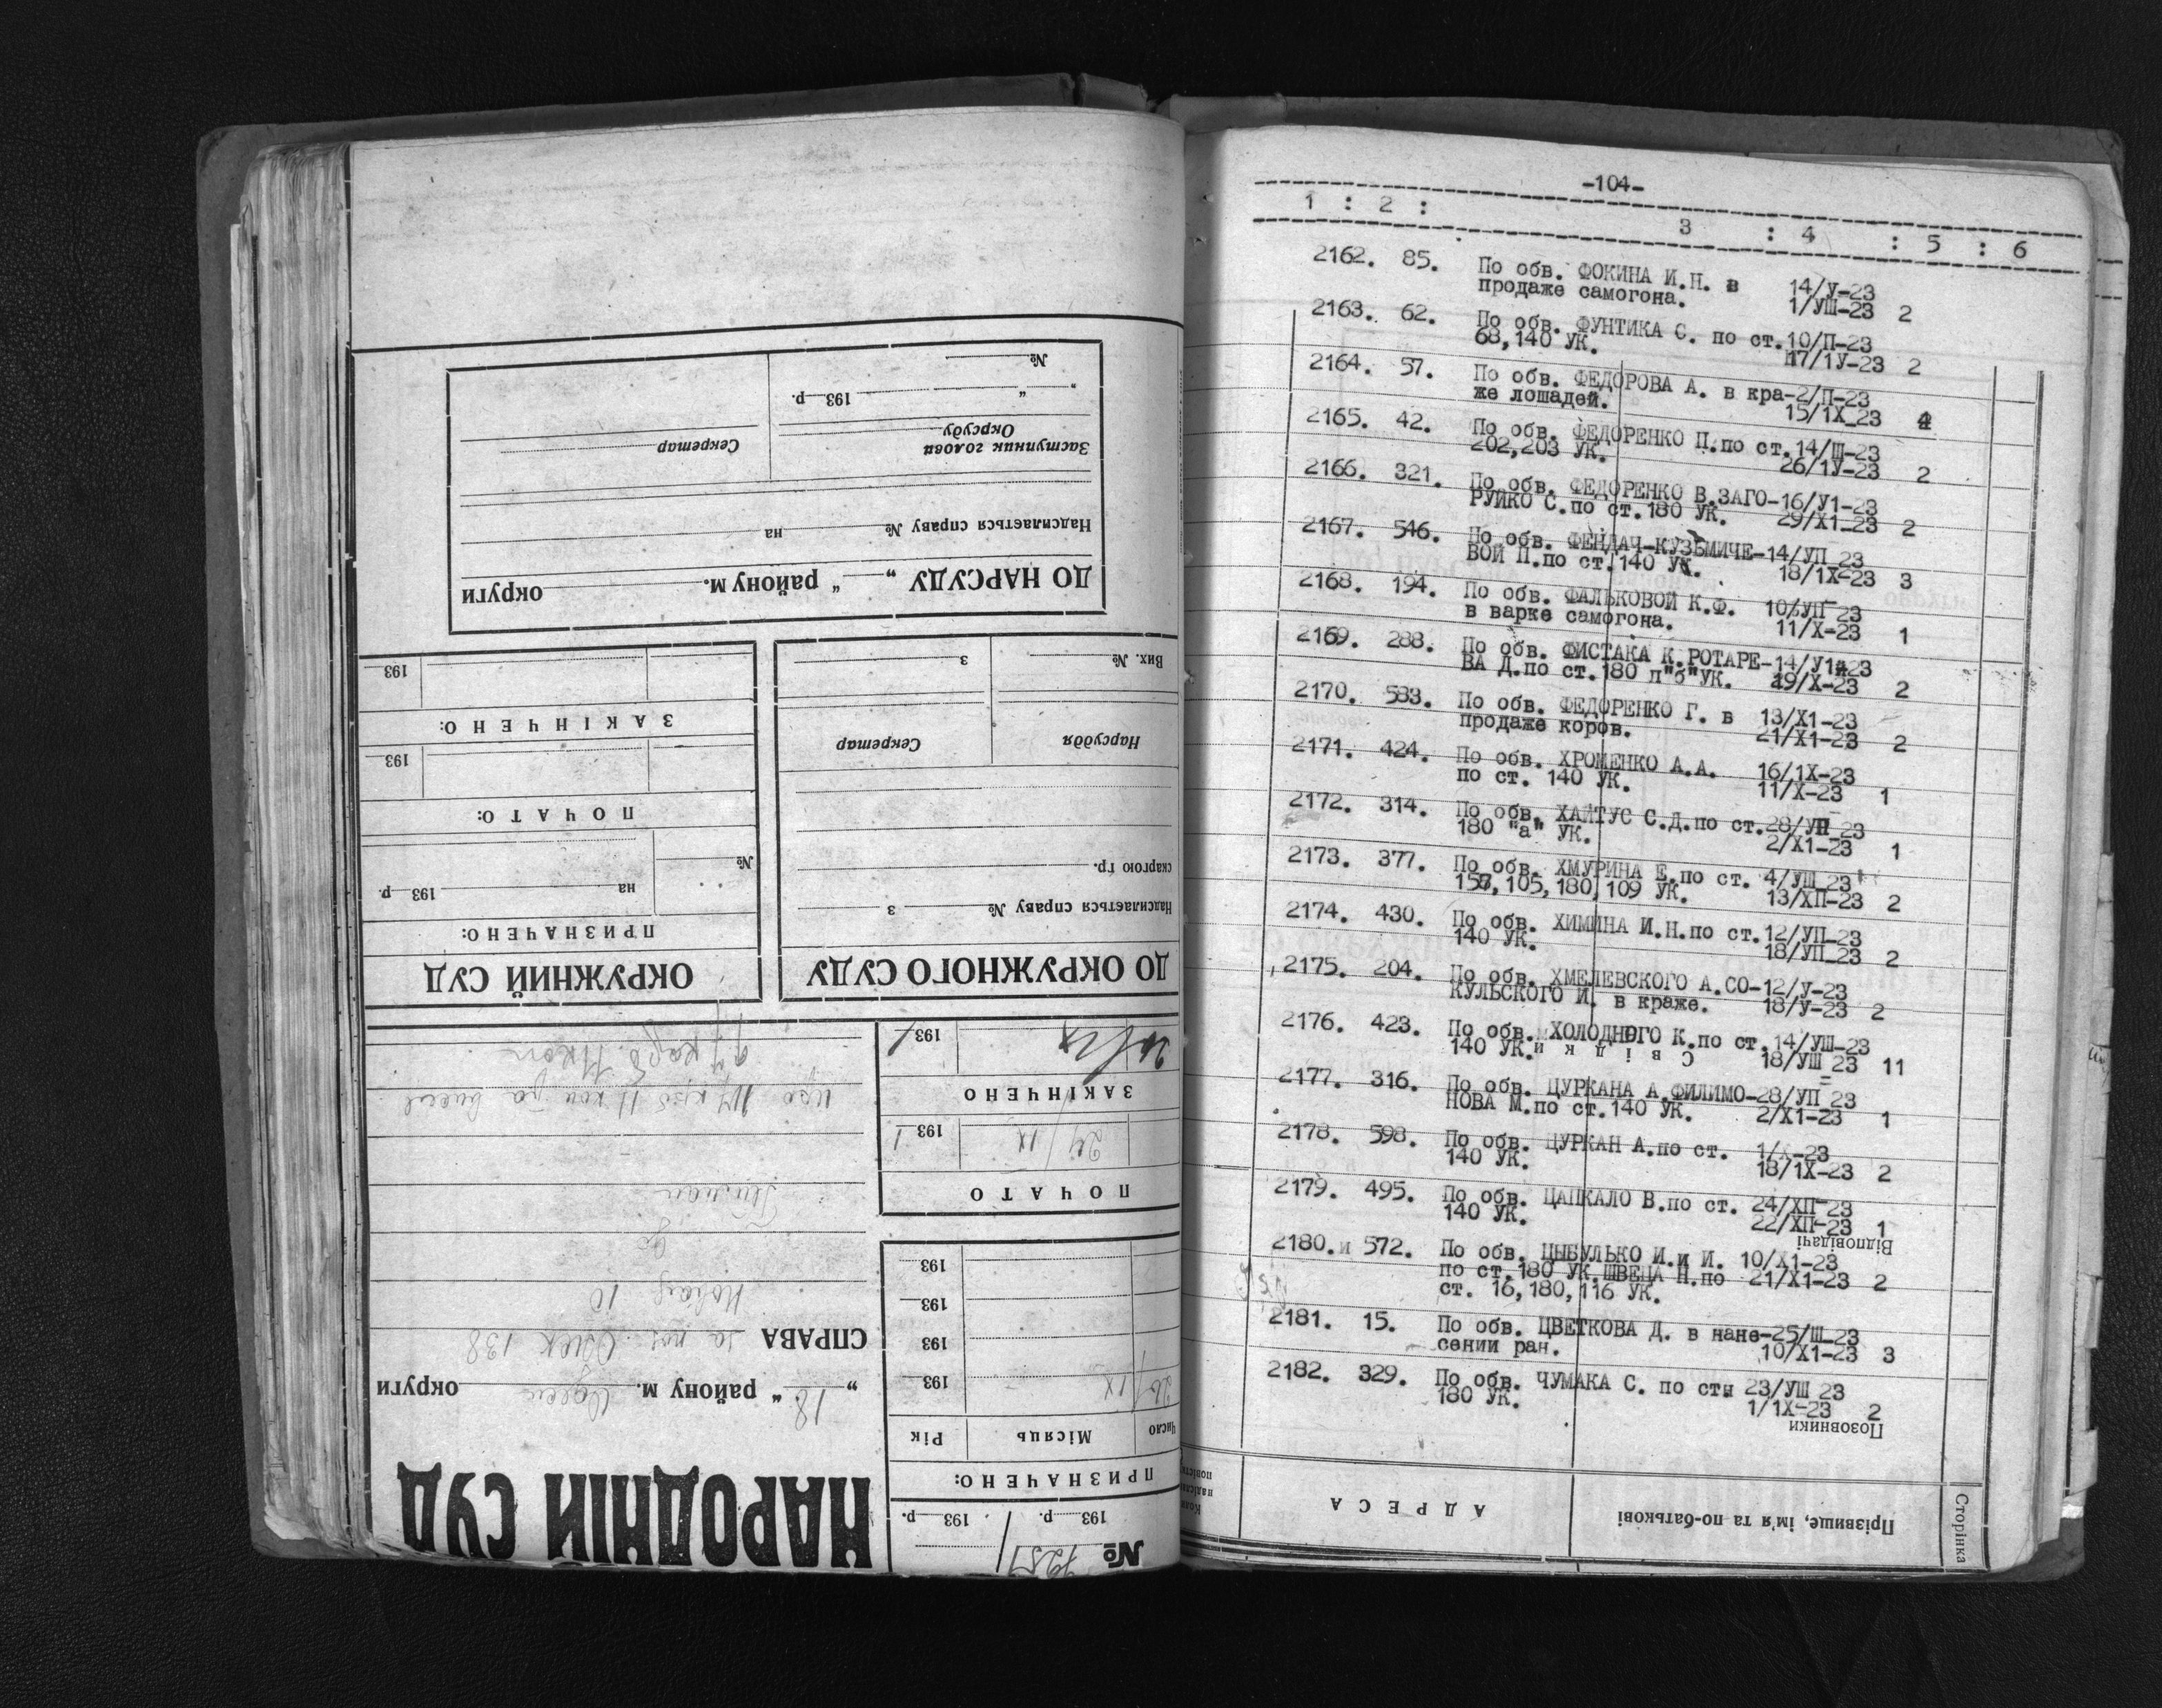 -104-
1 : 2 : 3 : 4 : 5 : 6
2162. 85. По обв. ФОКИНА И.Н. в 14/У-23
продаже самогона. 1/УШ-23 2
2163. 62. По обв. ФУНТИКА С. по ст.10/П-23
68,140 УК. 17/1У-23 2
2164. 57. По обв. ФЕДОРОВА А. в кра-2/П-23
же лошадей. 15/1Х_23 4
2165. 42. По обв. ФЕДОРЕНКО П.по ст.14/Ш-23
202,203 УК. 26/1У-23 2
2166. 321. По обв. ФЕДОРЕНКО В.ЗАГО-16/У1-23
РУЙКО С.по ст.180 УК. 29/Х1-23 2
2167. 546. По обв. ФЕНДАЧ-КУЗЬМИЧЕ-14/УП_23
ВОЙ П.по ст.140 УК. 18/1Х-23 3
2168. 194. По обв. ФАЛЬКОВОЙ К.Ф. 10/УП-23
в варке самогона. 11/Х-23 1
2169. 288. По обв. ФИСТАКА К.РОТАРЕ-14/У1-23
ВА Д.по ст.180 п"б"УК. 29/Х-23 2
2170. 583. По обв. ФЕДОРЕНКО Г. в 13/Х1-23
продаже коров. 21/Х1-23 2
2171. 424. По обв. ХРОМЕНКО А.А. 16/1Х-23
по ст. 140 УК. 11/Х-23 1
2172. 314. По обв. ХАЙТУС С.Д.по ст.28/УП_23
180 "а" УК. 2/Х1-23 1
2173. 377. По обв. ХМУРИНА Е.по ст. 4/УШ_23
157,105,180,109 УК. 13/ХП-23 2
2174. 430. По обв. ХИМИНА И.Н.по ст.12/УП_23
140 УК. 18/УП_23 2
2175. 204. По обв. ХМЕЛЕВСКОГО А.СО-12/У-23
КУЛЬСКОГО И. в краже. 18/У-23 2
2176. 423. По обв. ХОЛОДНОГО К.по ст.14/УШ-23
140 УК. 18/УШ_23 11
Свідки
2177. 316. По обв. ЦУРКАНА А.ФИЛИМО-28/УП_23
НОВА М.по ст.140 УК. 2/Х1-23 1
2178. 598. По обв. ЦУРКАН А.по ст. 1/Х-23
140 УК. 18/1Х-23 2
2179. 495. По обв. ЦАПКАЛО В.по ст. 24/ХП-23
140 УК. 22/ХП-23 1
Відповідачі
2180.и 572. По обв. ЦЫБУЛЬКО И.и И. 10/Х1-23
по ст.180 УК.ШВЕЦА Н.по 21/Х1-23 2
ст. 16,180,116 УК.
2181. 15. По обв. ЦВЕТКОВА Д. в нане-25/Ш_23
сении ран. 10/Х1-23 3
2182. 329. По обв. ЧУМАКА С. по стн 23/УШ 23
180 УК. 1/1Х-23 2
Позовники
Прізвище, ім'я та по-батькові
АДРЕСА
Сторінка
НАРОДНІЙ СУД
„18“ району м. округи
СПРАВА
138
10
№ 7251
193 р. 193 р.
ПРИЗНАЧЕНО:
Число Місяць Рік
26/IX 193
193
193
193
ПОЧАТО
24/IX 1931
ЗАКІНЧЕНО
193
ОКРУЖНИЙ СУД
ПРИЗНАЧЕНО:
№ на 193 р.
ПОЧАТО:
193
ЗАКІНЧЕНО:
193
ДО ОКРУЖНОГО СУДУ
Надсилається справу № з
скаргою гр.
Нарсуддя Секретар
Вих. № з
ДО НАРСУДУ „ “ району м. округи
Надсилається справу № на
Заступник голови
Окрсуду
Секретар
„ “ 193 р.
№